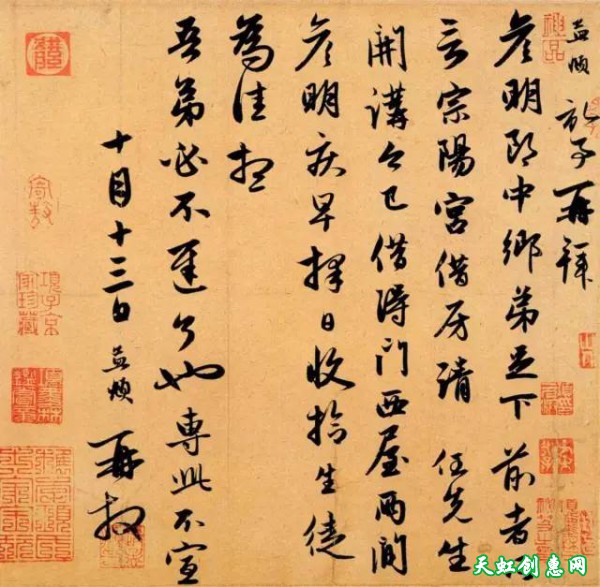 孟頫 頓首 再拜
彥明郎中鄉弟足下 前者
言宗陽宮借房請 任先生
開講今已借得門西屋兩間
彥明疾早擇日收拾生徒
為佳想
吾弟必不遲了也專此不宣
十月十三日 孟頫 再拜
項子京家珍藏
天虹创惠网